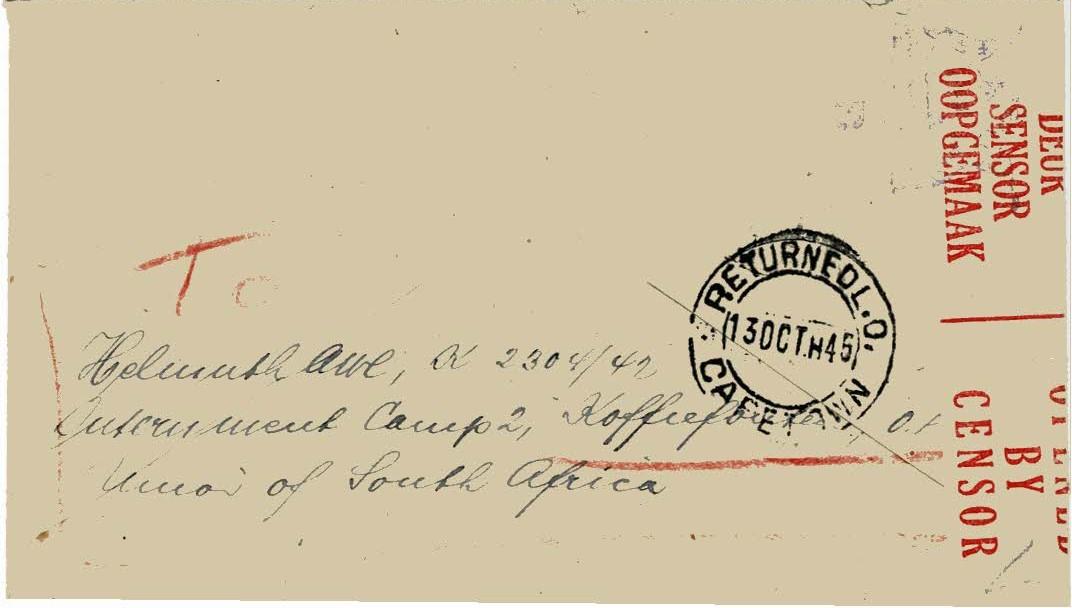 To
Helmuth Awe, K 2304/42
Internment Camp 2, Koffiefontein O.F.
Union of South Africa
RETURNED L.O.
13 OCT.H45
CAPETOWN
DEUR
SENSOR
OOPGEMAAK
OPENED
BY
CENSOR